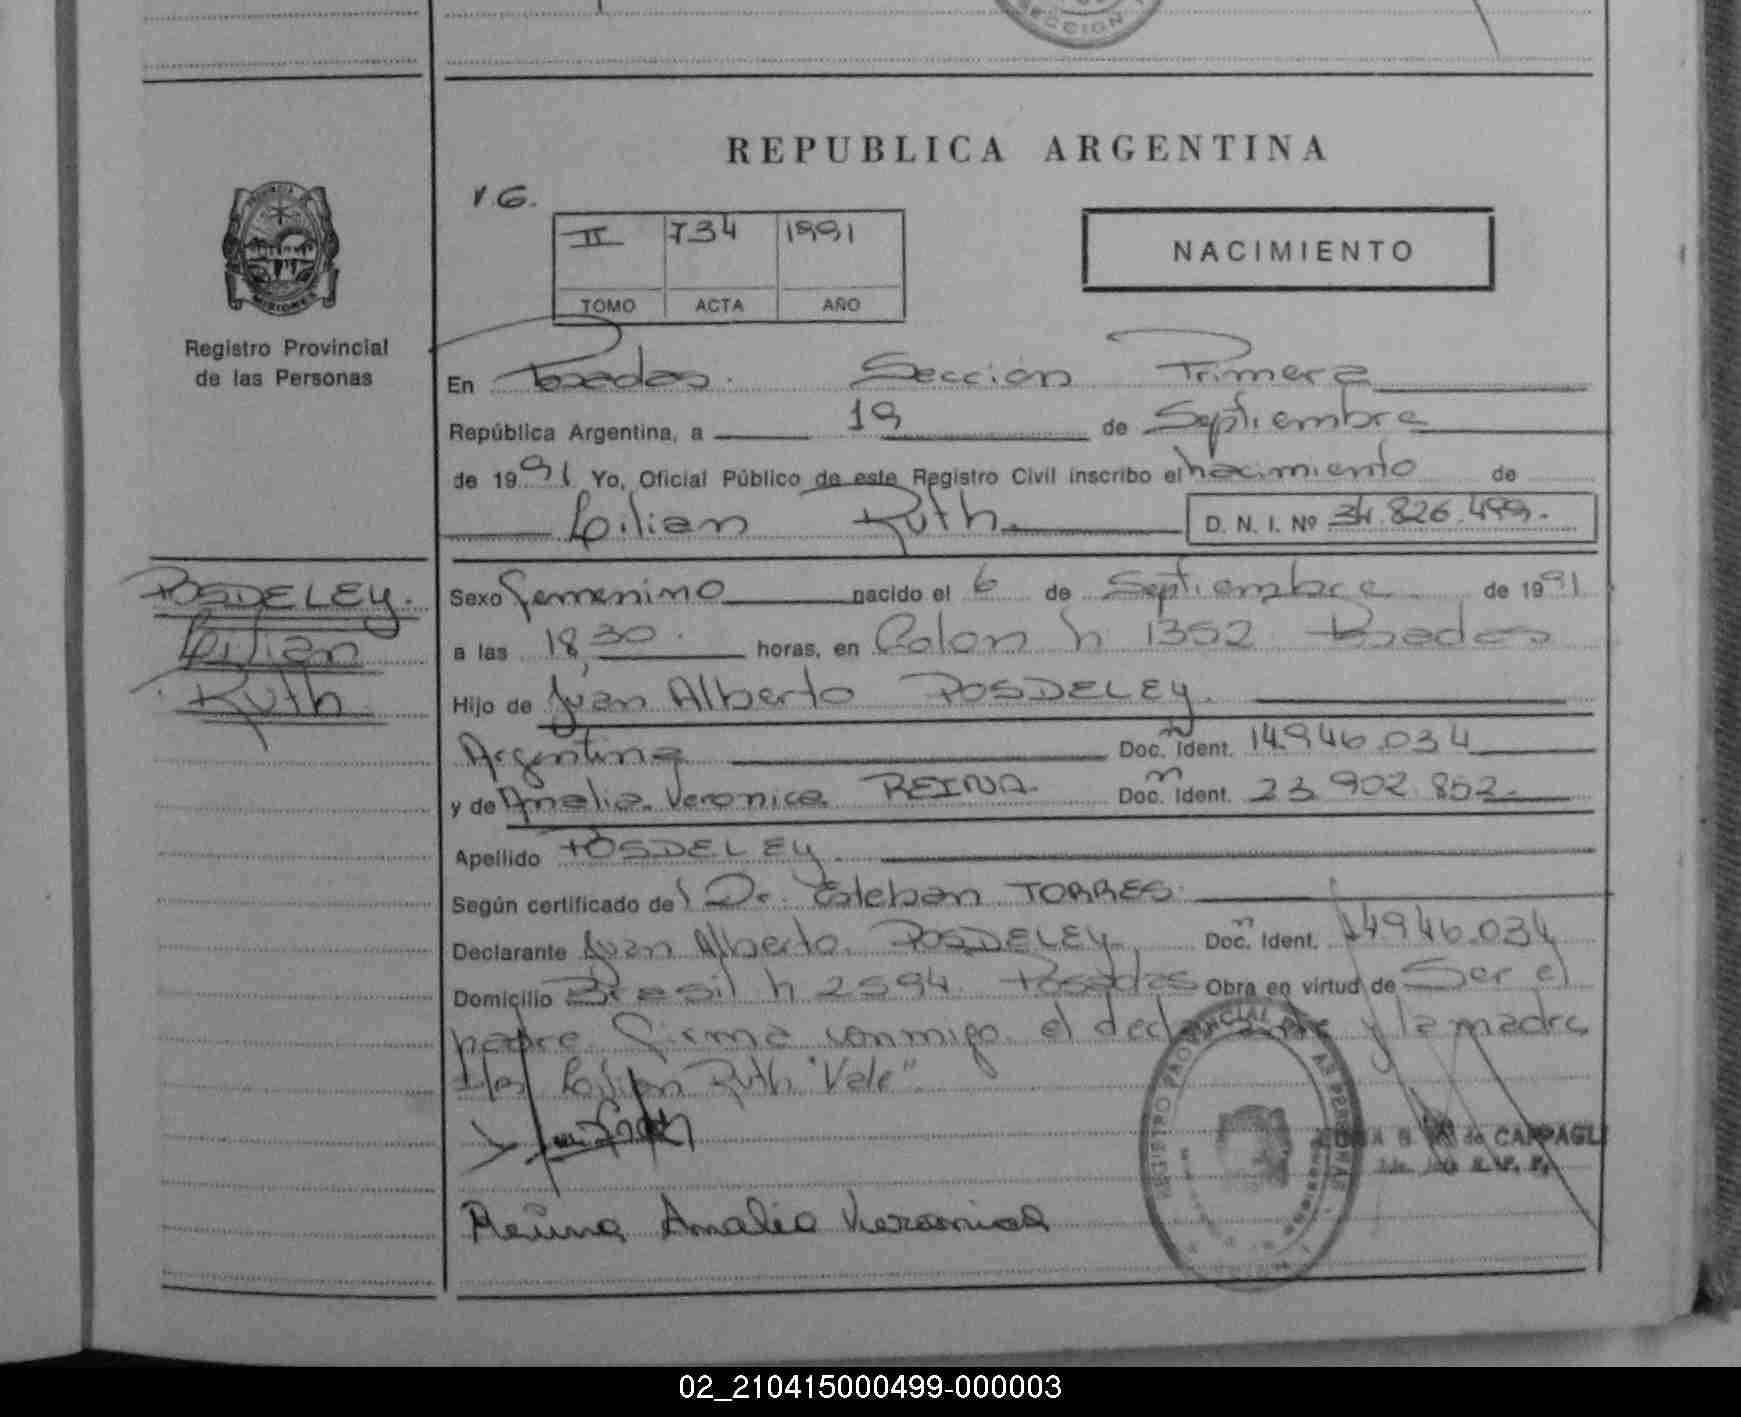 SECCION
REPUBLICA ARGENTINA
V.G.
II 734 1991
TOMO ACTA AÑO
NACIMIENTO
PROVINCIA
MISIONES
Registro Provincial
de las Personas
En Posadas. Sección Primera
República Argentina, a 19 de Septiembre
de 1991 Yo, Oficial Público de este Registro Civil inscribo el nacimiento de
Lilian Ruth. D. N. I. Nº 34.826.499.
POSDELEY.
Lilian
Ruth
Sexo femenino nacido el 6 de Septiembre de 1991
a las 18,30. horas, en Colon h 1352 Posadas
Hijo de Juan Alberto POSDELEY.
Argentina Doc. Ident. 14.946.034
y de Amalia Veronica REINA. Doc. Ident. 23.902.852.
Apellido POSDELEY.
Según certificado del Dr. Esteban TORRES.
Declarante Juan Alberto POSDELEY Doc. Ident. 14946.034
Domicilio Brasil h 2594 Posadas Obra en virtud de Ser el
padre firma conmigo el declarante y la madre
Lilian Ruth "Vale"
REGISTRO PROVINCIAL DE LAS PERSONAS
de CAPPAGLI
Reina Amalia Veronica
02_210415000499-000003